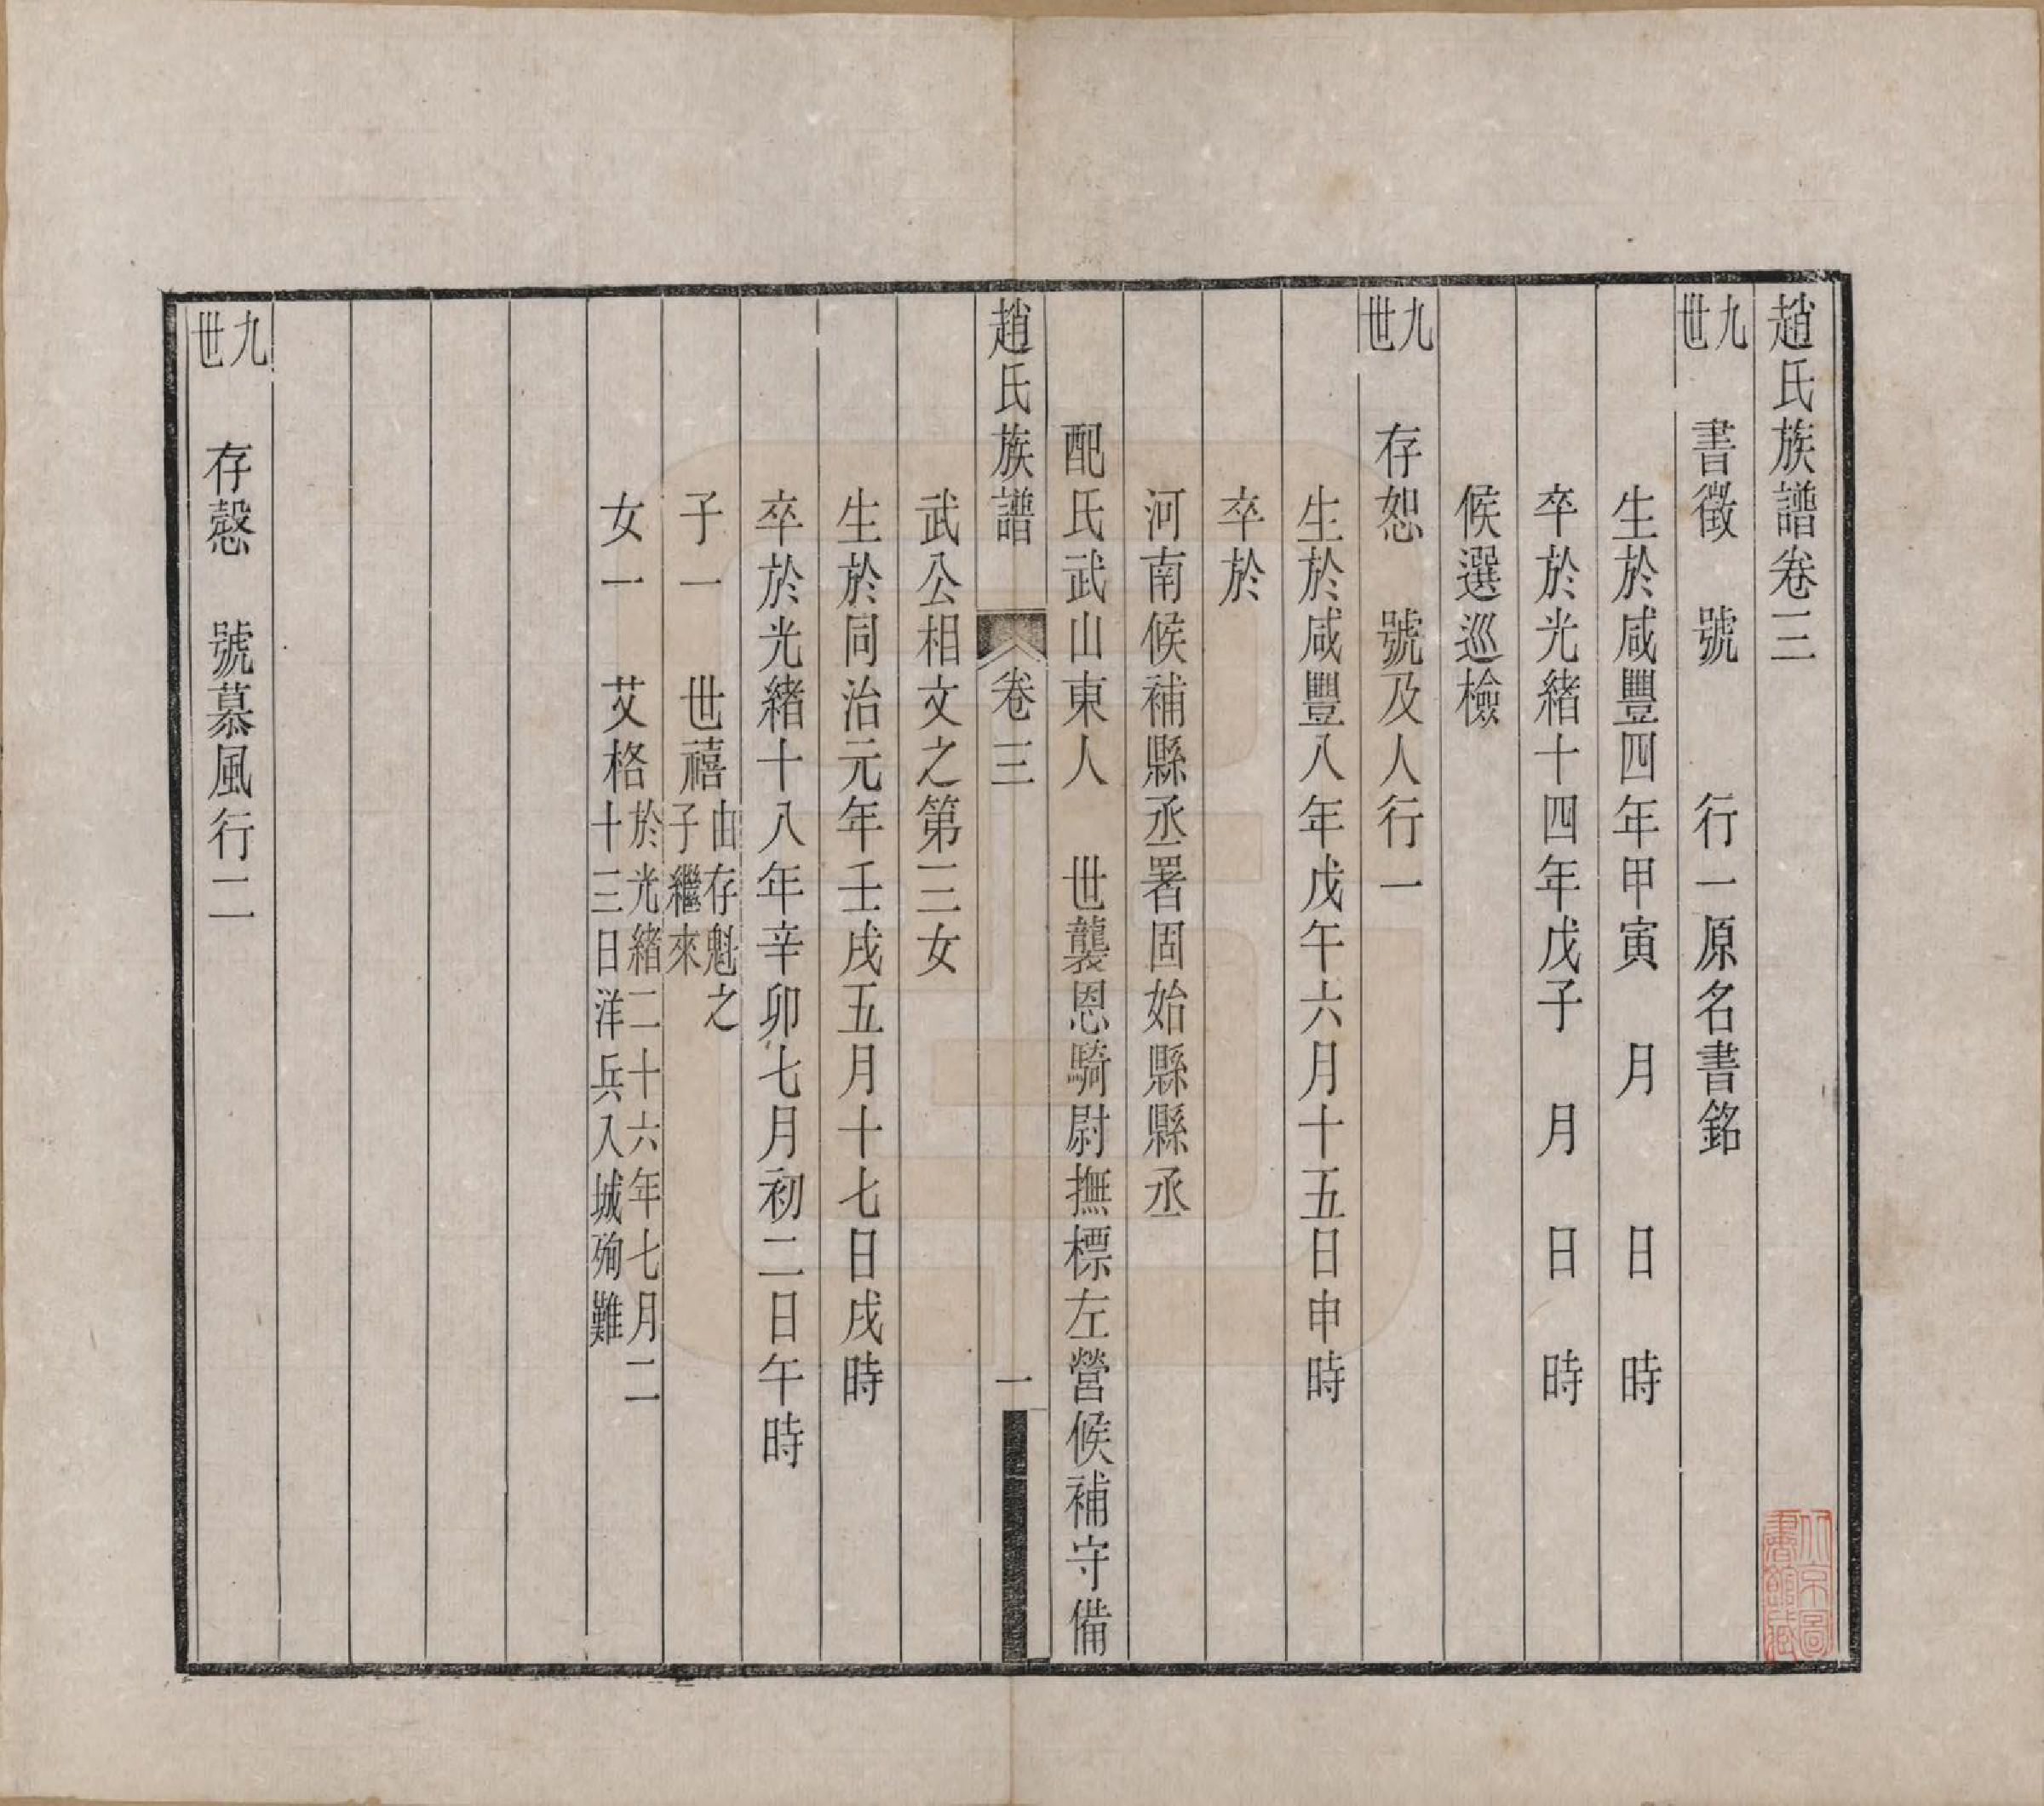 趙氏族譜卷三
九世 書徵 號 行一原名書銘
生於咸豐四年甲寅 月 日 時
卒於光緒十四年戊子 月 日 時
候選巡檢
九世 存恕 號及人行一
生於咸豐八年戊午六月十五日申時
卒於
河南候補縣丞署固始縣縣丞
配氏武山東人 世襲恩騎尉撫標左營候補守備
趙氏族譜 卷三 一
武公相文之第三女
生於同治元年壬戌五月十七日戌時
卒於光緒十八年辛卯七月初二日午時
子一 世禧 由存魁之子繼來
女一 艾格 於光緒二十六年七月二十三日洋兵入城殉難
九世 存慤 號慕風行二